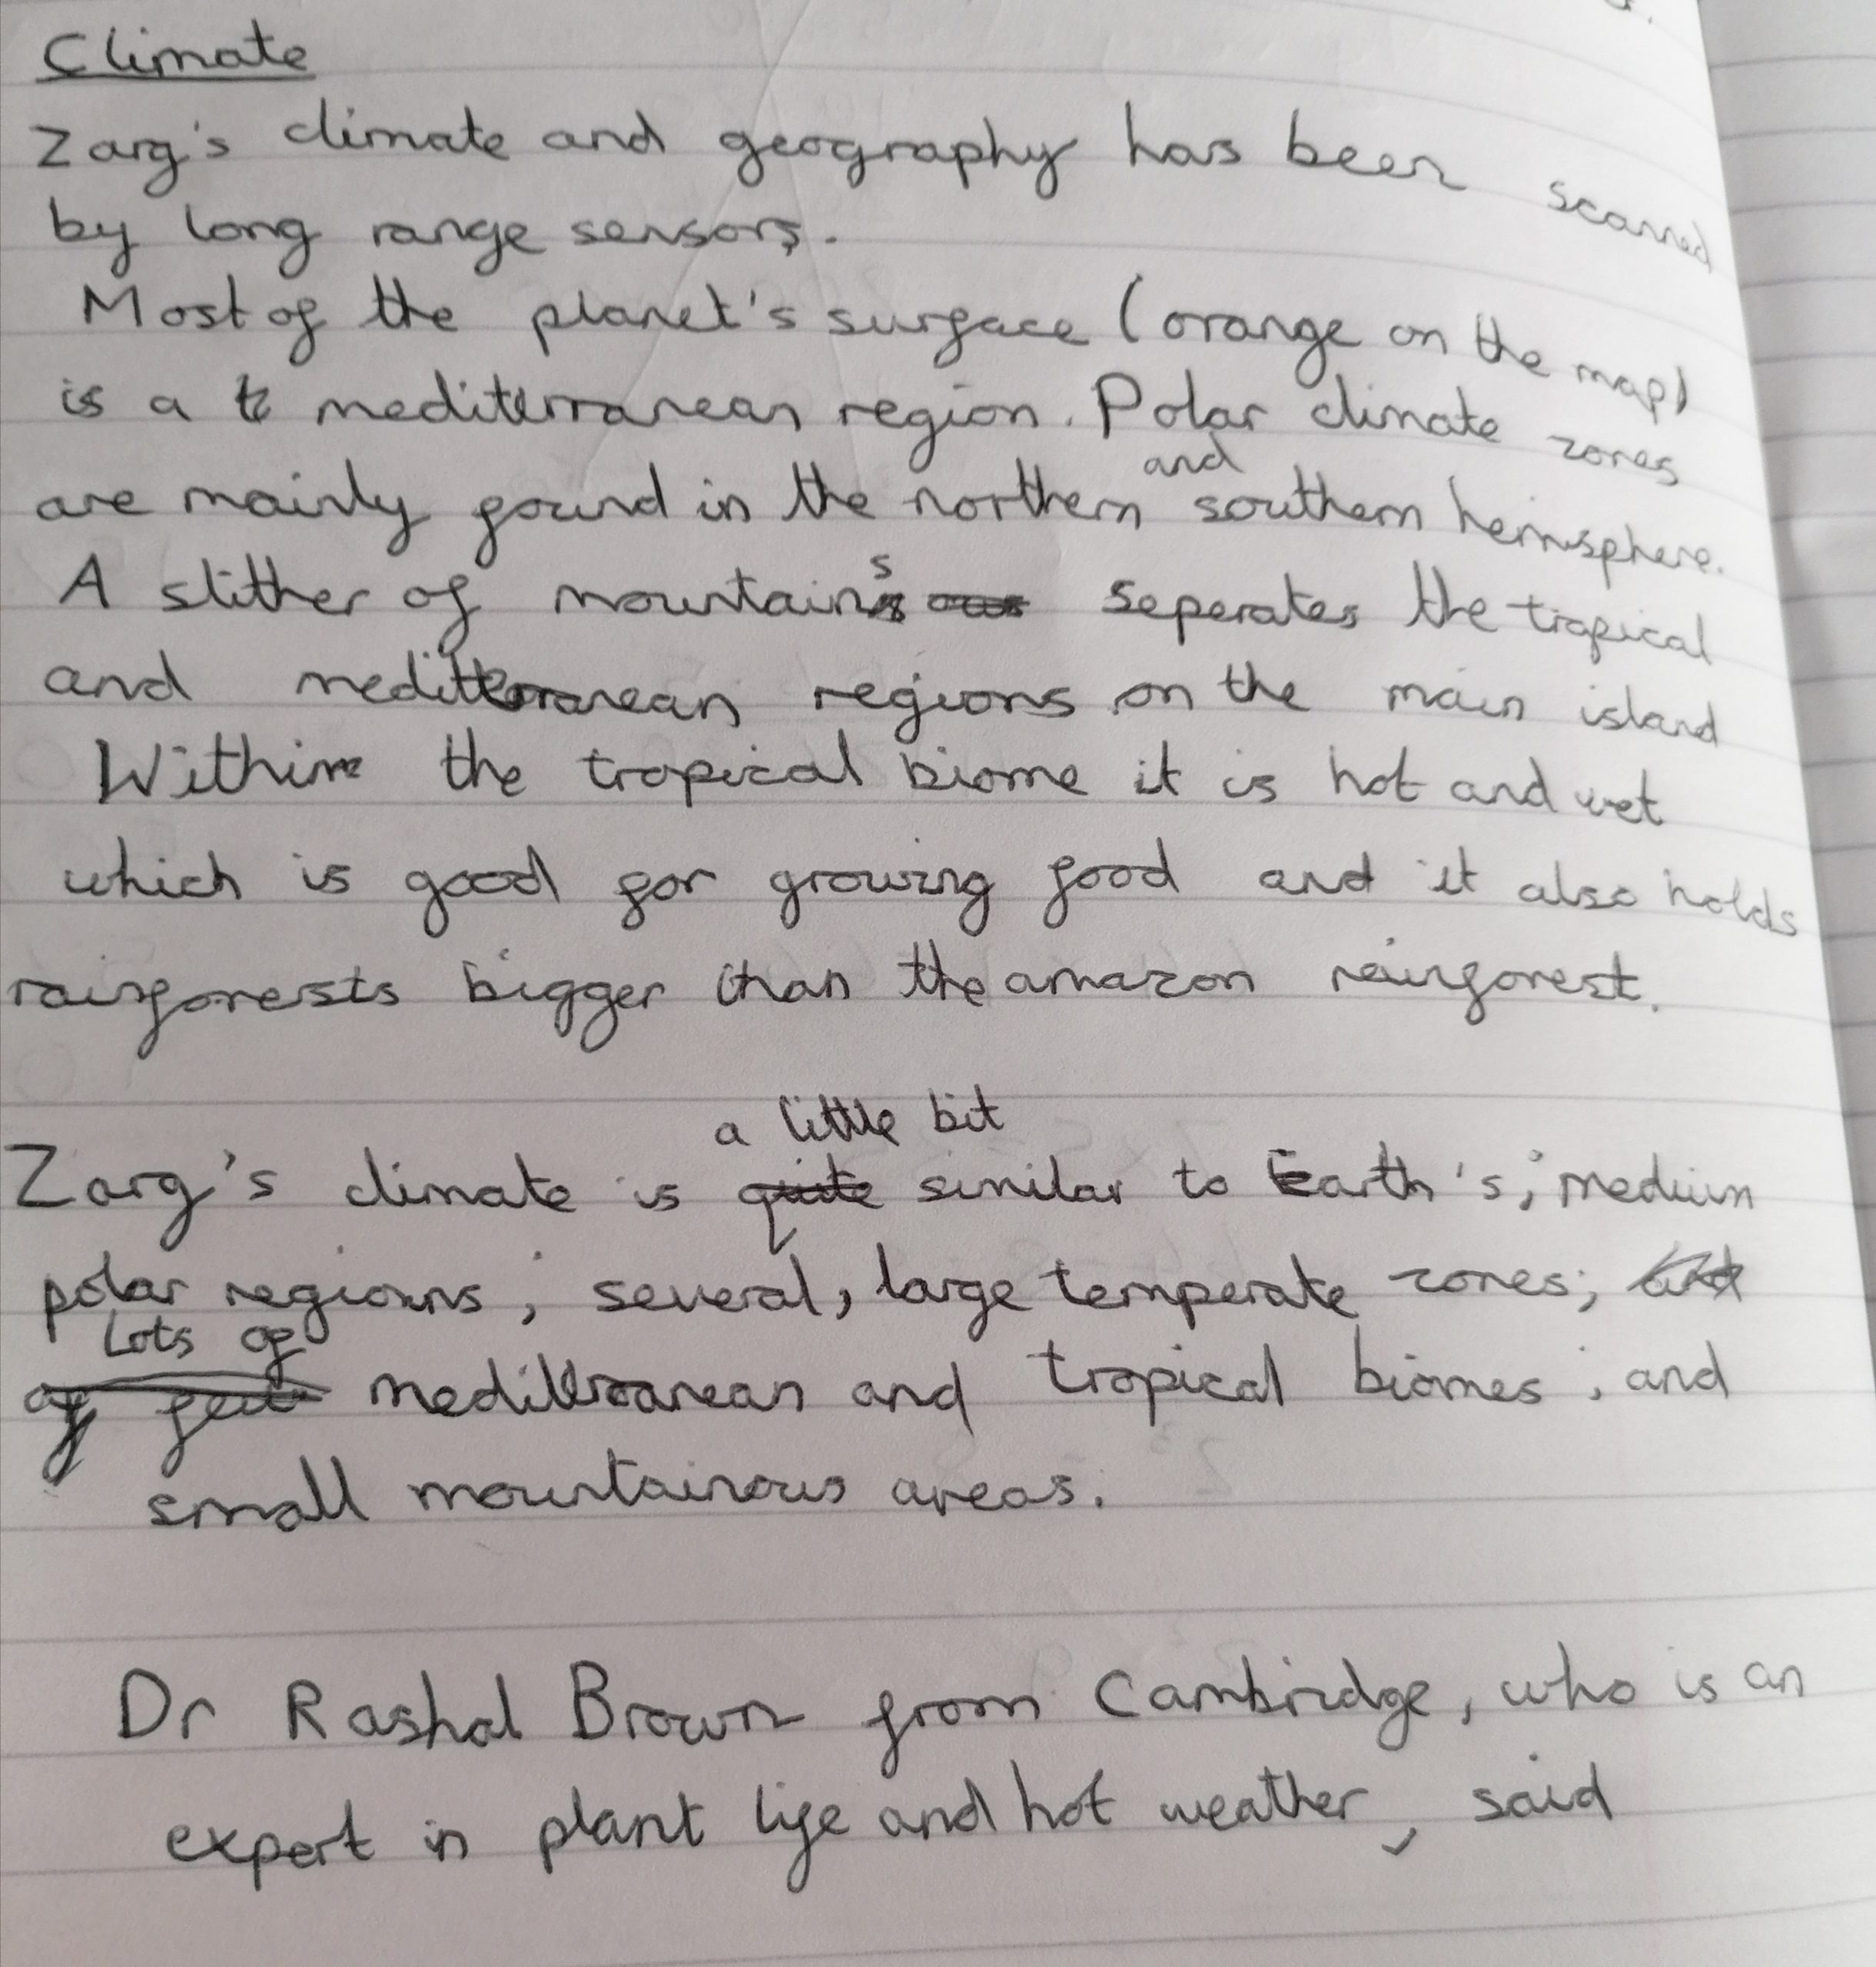 Climate
Zarg's climate and geography has been scanned
by long range sensors.
Most of the planet's surface (orange on the map)
is a mediterranean region. Polar climate zones
are mainly found in the northern and southern hemisphere.
A slither of mountains seperates the tropical
and mediterranean regions on the main island
Within the tropical biome it is hot and wet
which is good for growing food and it also holds
rainforests bigger than the amazon rainforest.
a little bit
Zarg's climate is quite similar to Earth's; medium
polar regions; several, large temperate zones;
Lots of
mediterranean and tropical biomes; and
small mountainous areas.
Dr Rashal Brown from Cambridge, who is an
expert in plant life and hot weather, said